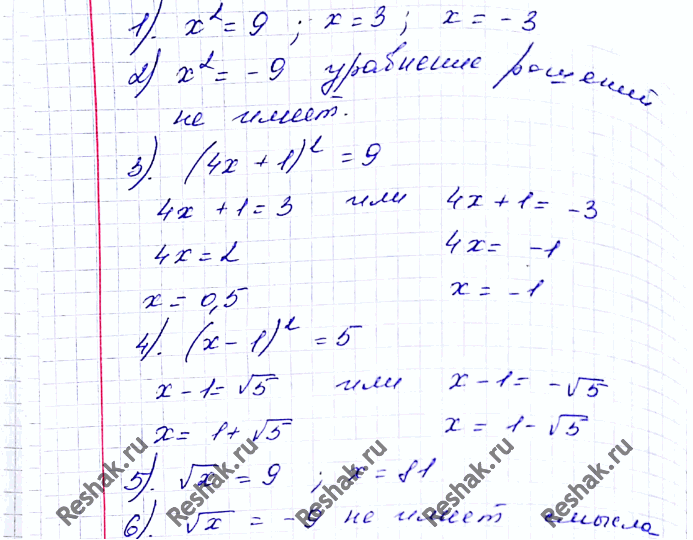 1). x² = 9 ; x = 3 ; x = -3
2) x² = -9 уравнение решений
не имеет.
3). (4x + 1)² = 9
4x + 1 = 3 или 4x + 1 = -3
4x = 2 4x = -1
x = 0,5 x = -1
4). (x - 1)² = 5
x - 1 = √5 или x - 1 = -√5
x = 1 + √5 x = 1 - √5
5). √x = 9 ; x = 81
6). √x = -9 не имеет смысла
Reshak.ru Reshak.ru Reshak.ru Reshak.ru Reshak.ru